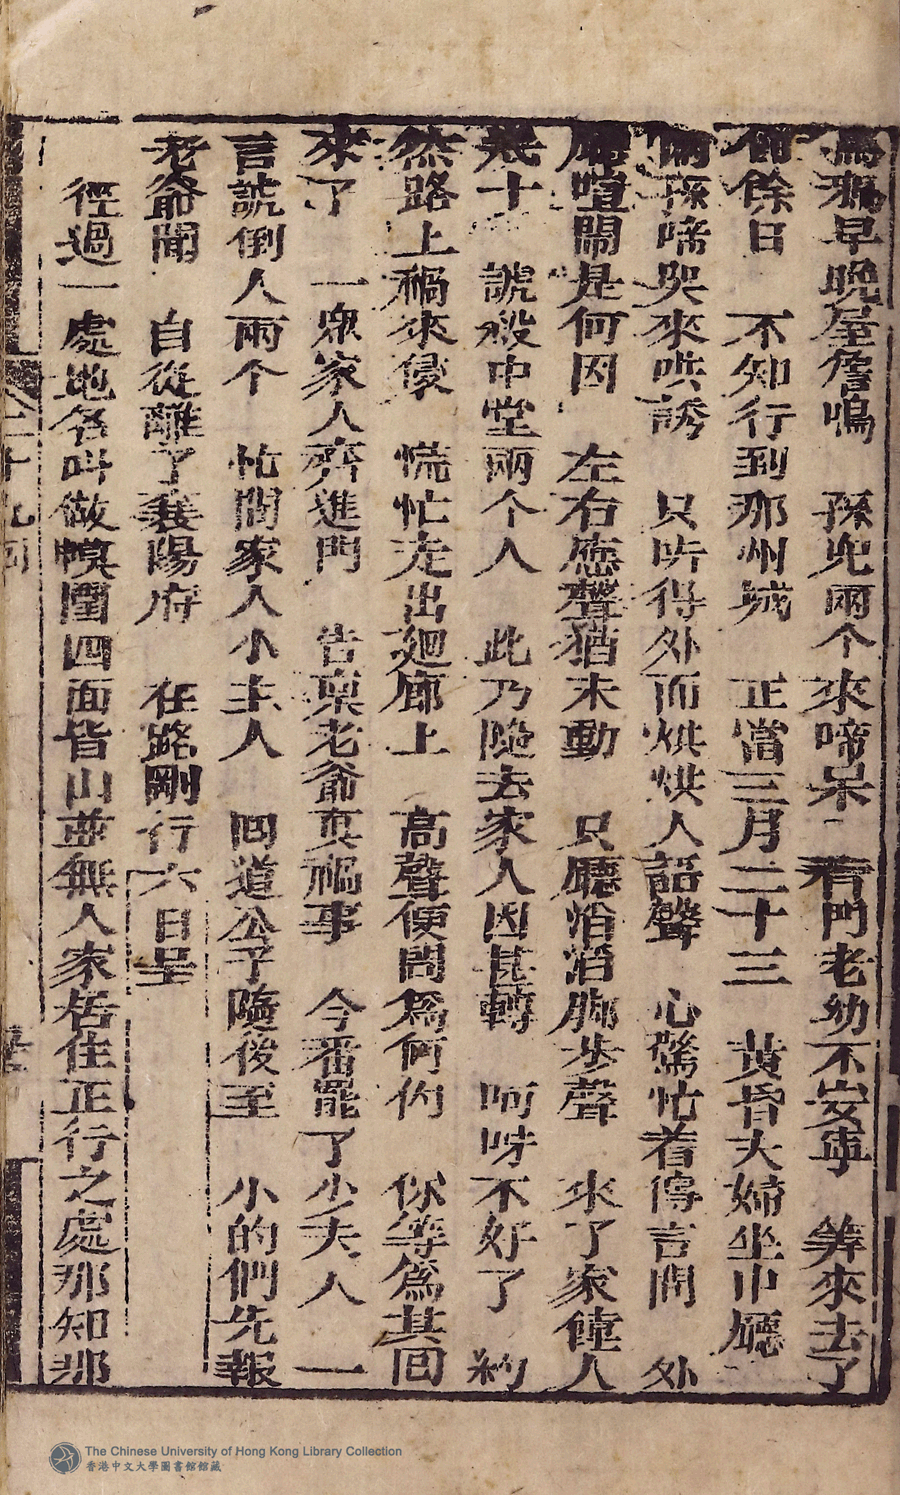 鳥鴉早晚屋簷鳴　孫兒兩个來啼呆　看門老幼不安寧　筭來去了
餘日　不知行到那州城　正當三月二十三　黃昏夫婦坐中廳
兩孫啼哭來哄誘　只听得外面烘烘人語聲　心驚忙着傳言問　外
廂喧鬧是何因　左右應聲猶未動　只聽滔滔脚步聲　來了家僮人
幾十　諕殺中堂兩个人　此乃隨去家人因甚轉　呵呀不好了　約
然路上禍來侵　慌忙走出廻廊上　高聲便問爲何的　你等爲甚回
來了　一衆家人齊進門　告禀老爺眞禍事　今番罷了少夫人　一
言諕倒人兩个　忙問家人小主人　回道公子隨後至　小的們先報
老爺聞　自從離了襄陽府　在路剛行六日呈
徑過一處地名叫做幙圍四面皆山並無人家居住正行之處那知那
二十九回
The Chinese University of Hong Kong Library Collection
香港中文大學圖書館館藏